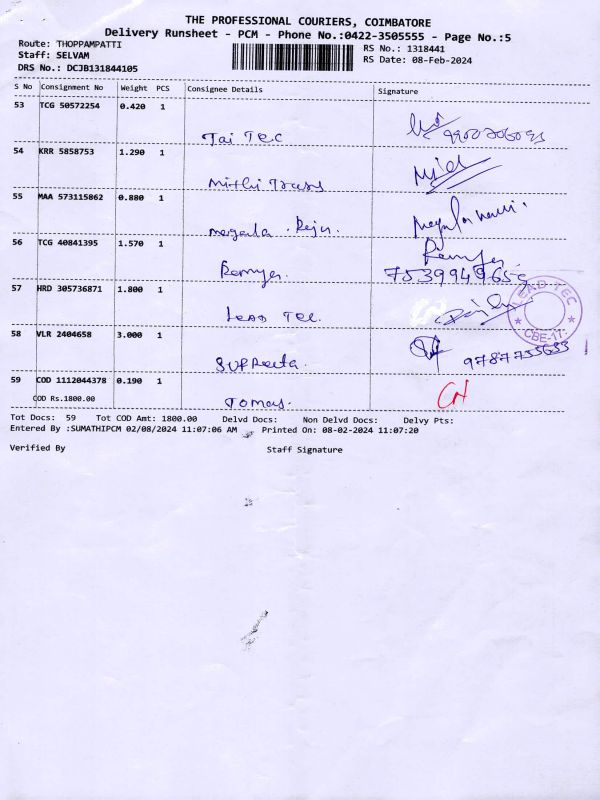 THE PROFESSIONAL COURIERS, COIMBATORE
Delivery Runsheet - PCM - Phone No.:0422-3505555 - Page No.:5
Route: THOPPAMPATTI
RS No.: 1318441
Staff: SELVAM
RS Date: 08-Feb-2024
DRS No.: DCJB131844105
S No Consignment No Weight PCS Consignee Details Signature
53 TCG 50572254 0.420 1
Tai Tec
54 KRR 5858753 1.290 1
Mithi Trass
55 MAA 573115862 0.880 1
megala . Reju.
56 TCG 40841395 1.570 1
Ramya. 7539949655
57 HRD 305736871 1.800 1
LEAD TEC.
LEAD TEC
CBE-17.
58 VLR 2404658 3.000 1
Supreeta. 9787735633
59 COD 1112044378 0.190 1
CH
COD Rs.1800.00
Tomas.
Tot Docs: 59 Tot COD Amt: 1800.00 Delvd Docs: Non Delvd Docs: Delvy Pts:
Entered By :SUMATHIPCM 02/08/2024 11:07:06 AM Printed On: 08-02-2024 11:07:20
Verified By Staff Signature